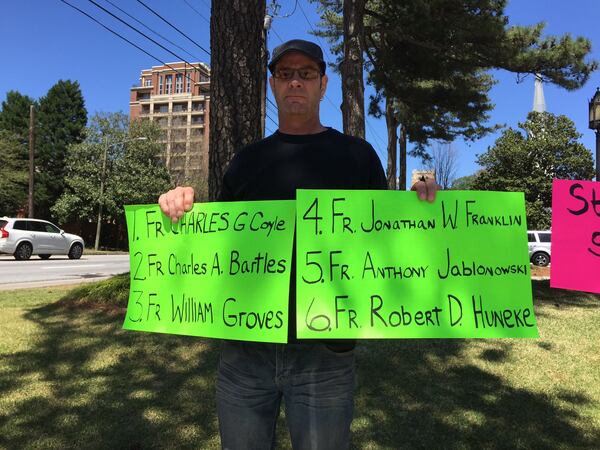 1. Fr. CHARLES G Coyle
2 Fr Charles A. Bartles
3. Fr William Groves
4. Fr. Jonathan W. Franklin
5. Fr. Anthony Jablonowski
6. Fr. Robert D. Huneke